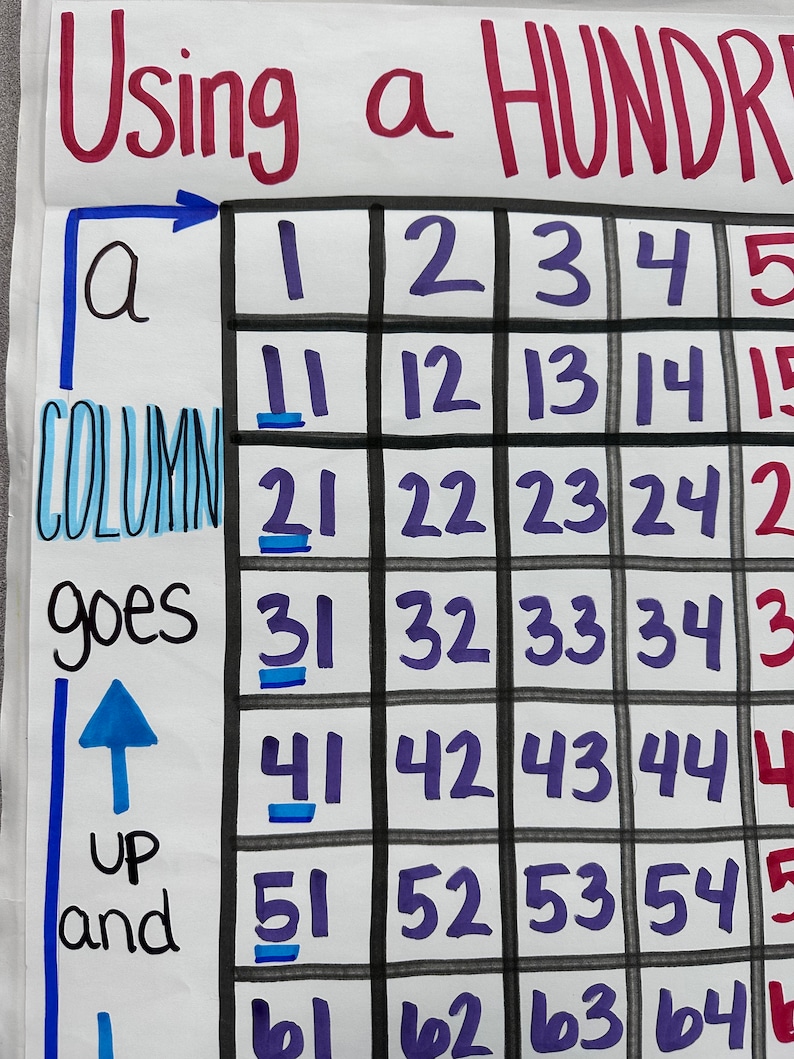 Using a HUNDR
a
COLUMN
goes
up
and
1 2 3 4 5
11 12 13 14 15
21 22 23 24 2
31 32 33 34 3
41 42 43 44 4
51 52 53 54 5
61 62 63 64 6